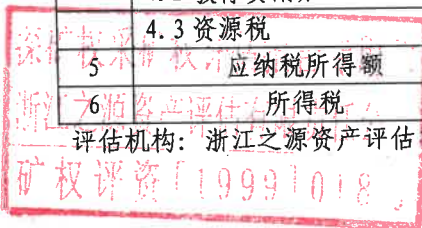 4.3 资源税
5 应纳税所得额
6 所得税
评估机构：浙江之源资产评估
探矿权采矿权评估
浙江之源资产评估
矿权评资[1999]018